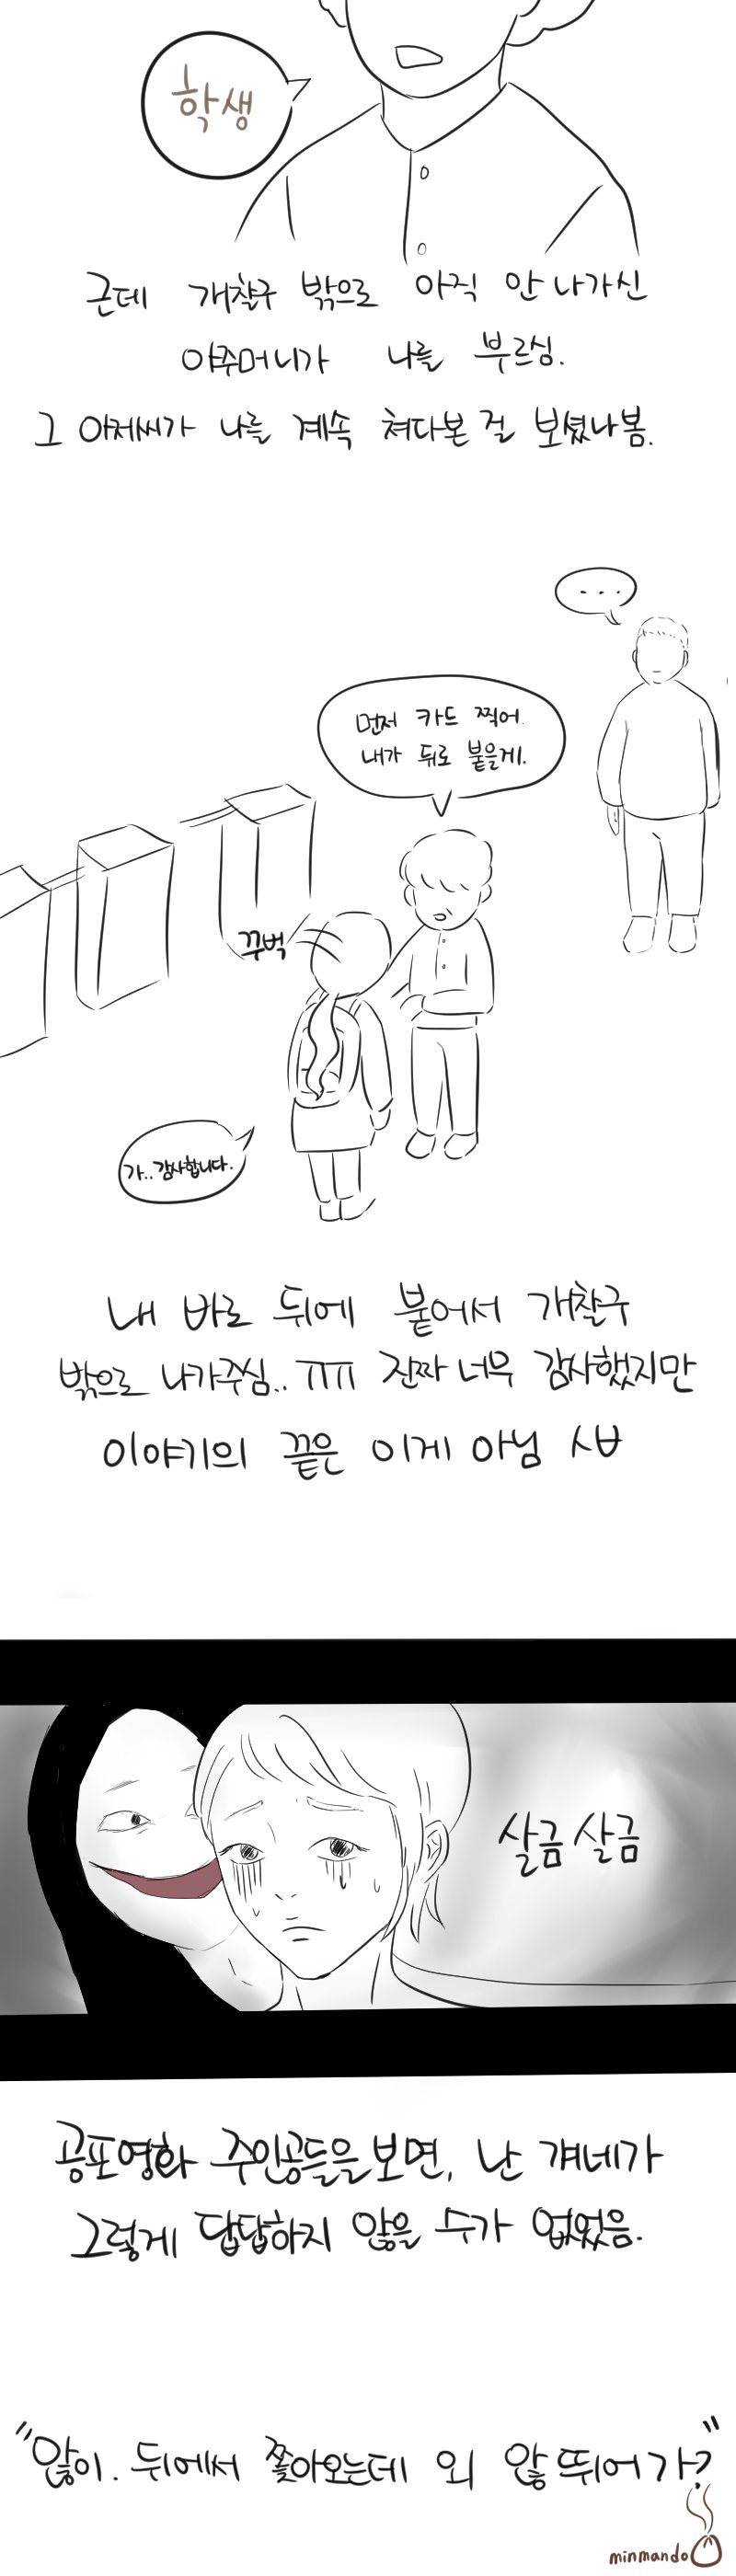 학생
근데 개찰구 밖으로 아직 안 나가신
아주머니가 나를 부르심.
그 아저씨가 나를 계속 쳐다본 걸 보셨나봄.
...
먼저 카드 찍어.
내가 뒤로 붙을게.
꾸벅
가..감사합니다.
내 바로 뒤에 붙어서 개찰구
밖으로 나가주심.. ㅠㅠ 진짜 너무 감사했지만
이야기의 끝은 이게 아님 ㅅㅂ
살금 살금
공포영화 주인공들을 보면, 난 걔네가
그렇게 답답하지 않을 수가 없었음.
"않이. 뒤에서 쫓아오는데 외 않 뛰어가?"
minmando